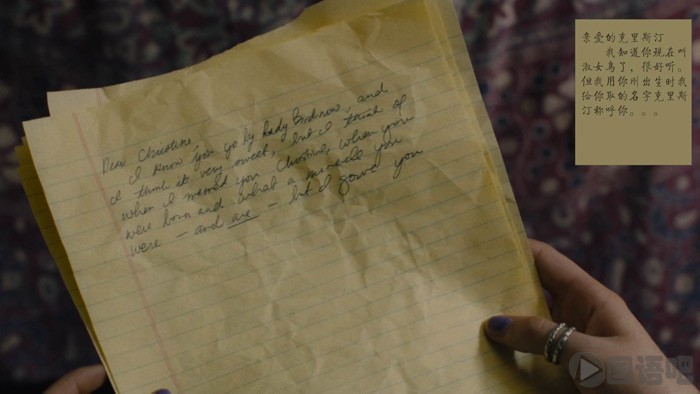 Dear Christine,
I know you go by Lady Bird now, and
I think it's very sweet, but I think of
when I named you Christine, when you
were born and what a miracle you
were – and are – but I gave you
亲爱的克里斯汀
我知道你现在叫
淑女鸟了，很好听。
但我用你刚出生时我
给你取的名字克里斯
汀称呼你。。。
国语吧